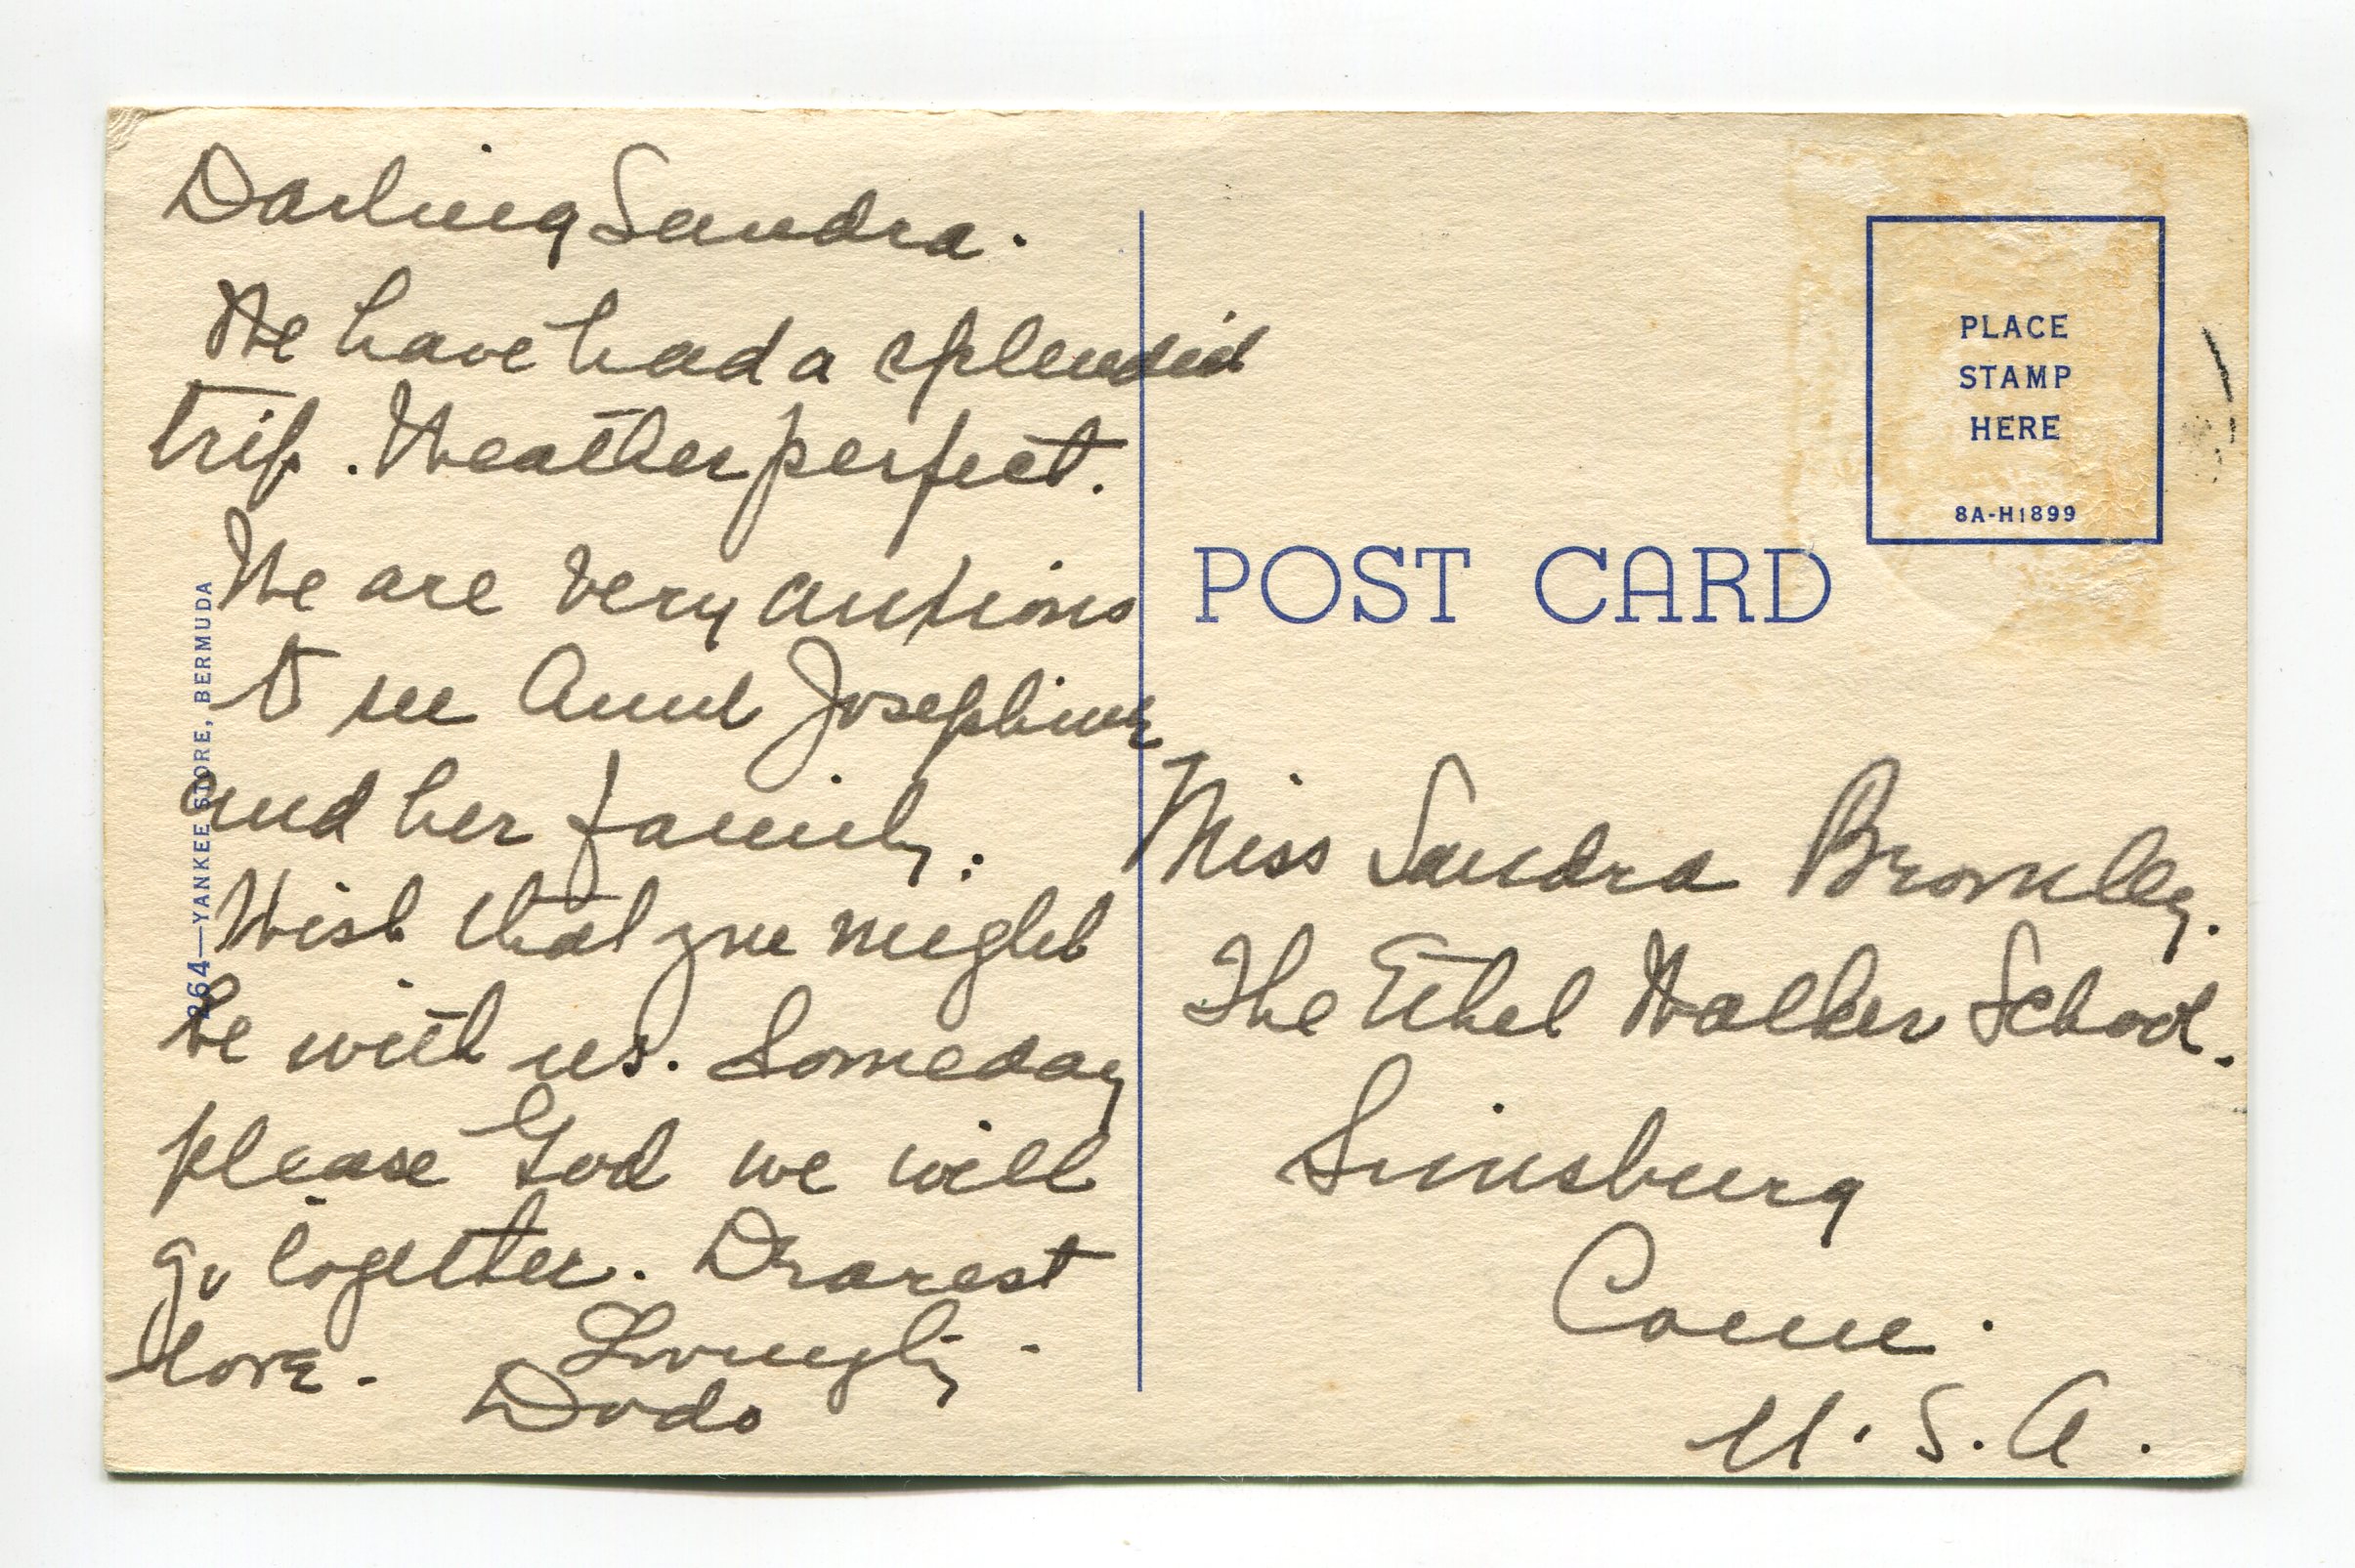 Darling Sandra.
We have had a splendid
trip. Weather perfect.
We are very anxious
to see Aunt Josephine
and her family.
Wish that you might
be with us. Someday
please God we will
go together. Dearest
love. Lovingly.
Dodo
2264—YANKEE STORE, BERMUDA
PLACE
STAMP
HERE
8A-H1899
POST CARD
Miss Sandra
The Ethel Walker School.
Simsbury
Conn.
U.S.A.